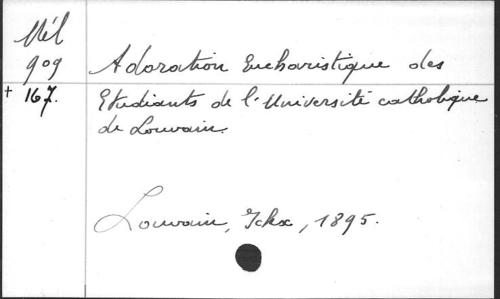 Mél
909
+ 167.
Adoration Eucharistique des
Etudiants de l'Université catholique
de Louvain.
Louvain, Ickx, 1895.